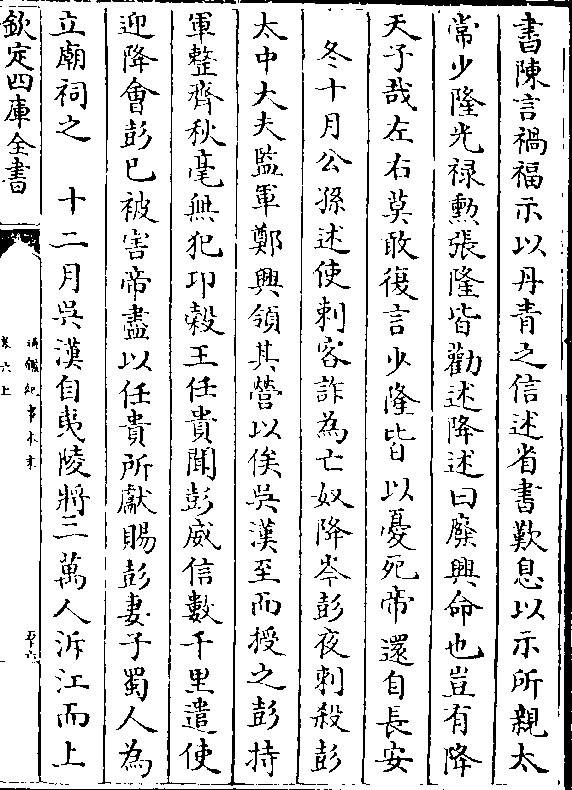 書陳言禍福示以丹青之信述省書歎息以示所親太
常少隆光禄勲張隆皆勸述降述曰廢興命也豈有降
天子哉左右莫敢復言少隆皆以憂死帝還自長安
冬十月公孫述使刺客詐為亡奴降岑彭夜刺殺彭
太中大夫監軍鄭興領其營以俟吳漢至而授之彭持
軍整齊秋毫無犯卭穀王任貴聞彭威信數千里遣使
迎降會彭已被害帝盡以任貴所獻賜彭妻子蜀人為
立廟祠之　十二月吳漢自夷陵將三萬人泝江而上
欽定四庫全書
通鑑紀事本末
卷六上